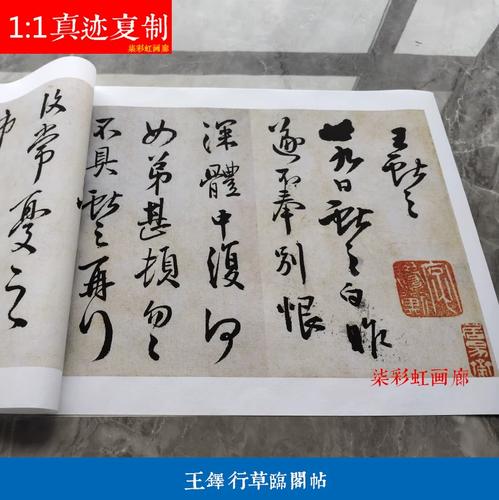 1:1真迹复制
柒彩虹画廊
王獻之
廿九日獻之白昨
遂不奉別恨
深體中復何
如弟甚頓勿〻
不具獻之再拜
常憂之
柒彩虹画廊
王鐸行草臨閣帖